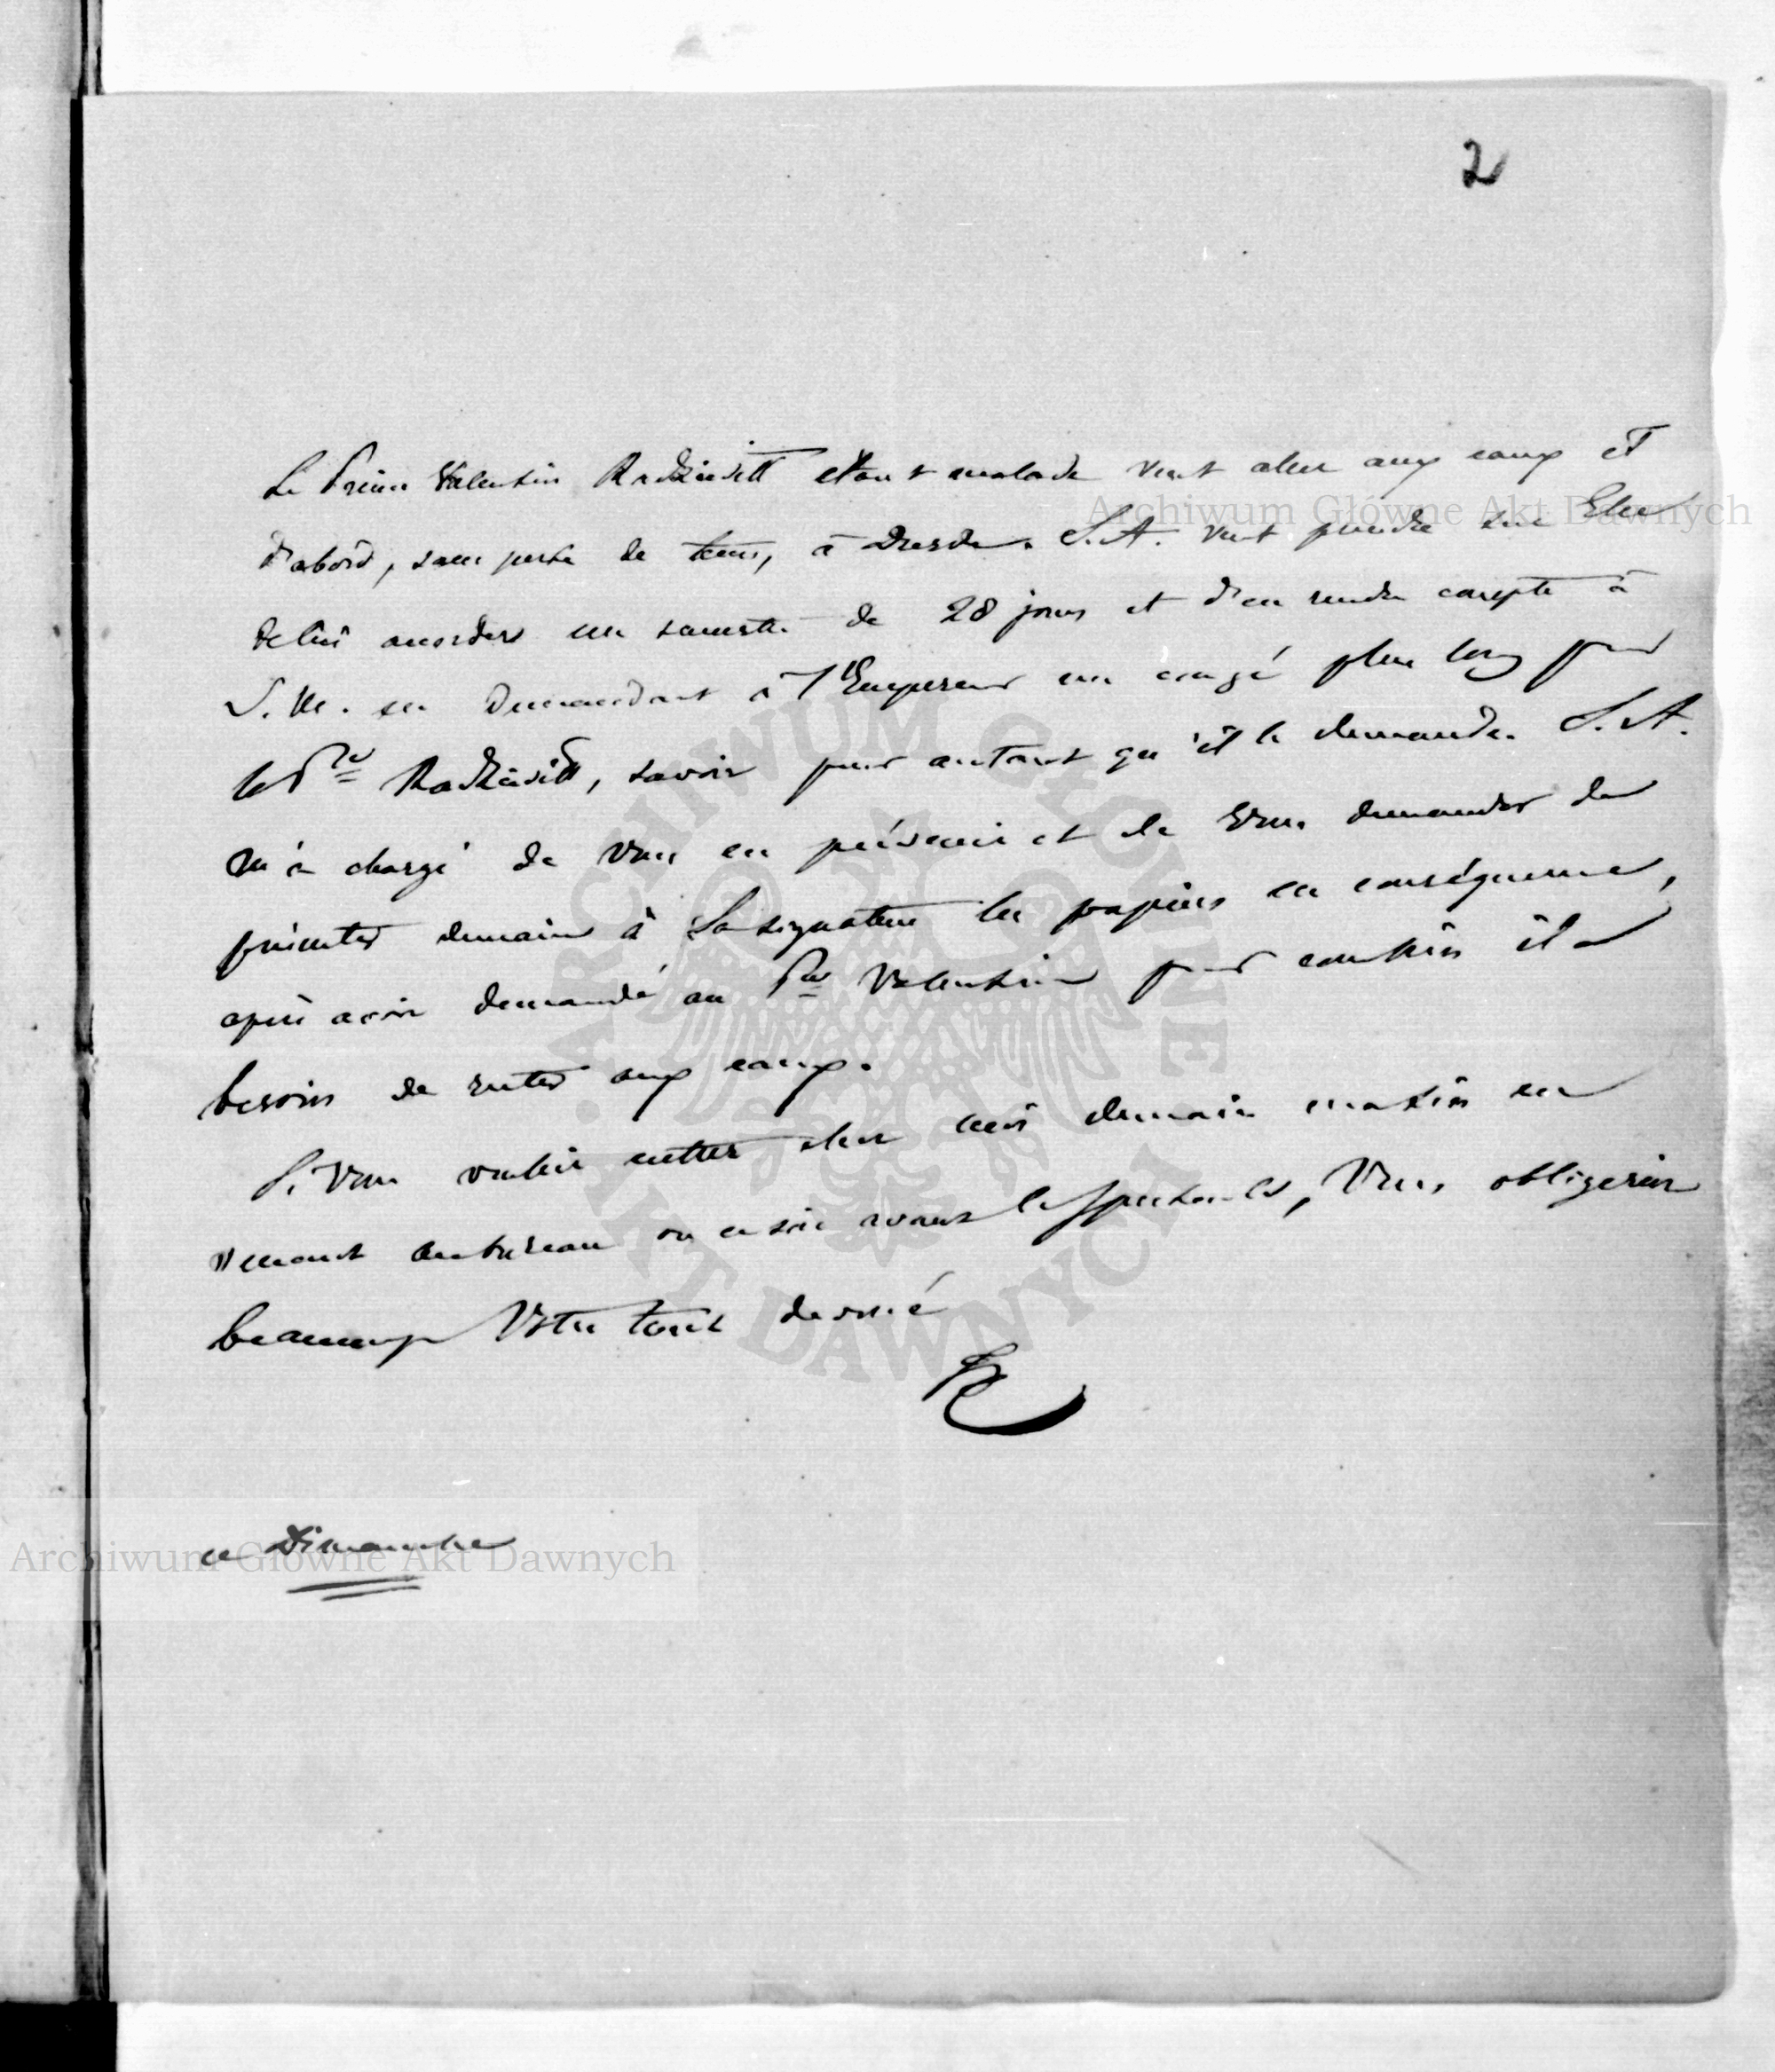 2
Le Prince Valentin Radziwill étant malade veut aller aux eaux et
d'abord, sans perte de tems, à Dresde. S. A. veut prendre sur Elle
de lui accorder un semestre de 28 jours et d'en rendre compte à
S. M. en demandant à l'Empereur un congé plus long pour
le Pce Radziwill, savoir pour autant qu'il le demande. S. A.
m'a chargé de Vous en prévenir et de Vous demander de
présenter demain à Sa signature les papiers en conséquence,
après avoir demandé au Pce Valentin pour combien il a
besoin de rester aux eaux.
Si Vous vouliez entrer chez moi demain matin en
venant au bureau ou ce soir avant le spectacle, Vous obligeriez
beaucoup Votre tout dévoué
ce Dimanche
Archiwum Główne Akt Dawnych
Archiwum Główne Akt Dawnych
ARCHIWUM GŁÓWNE AKT DAWNYCH